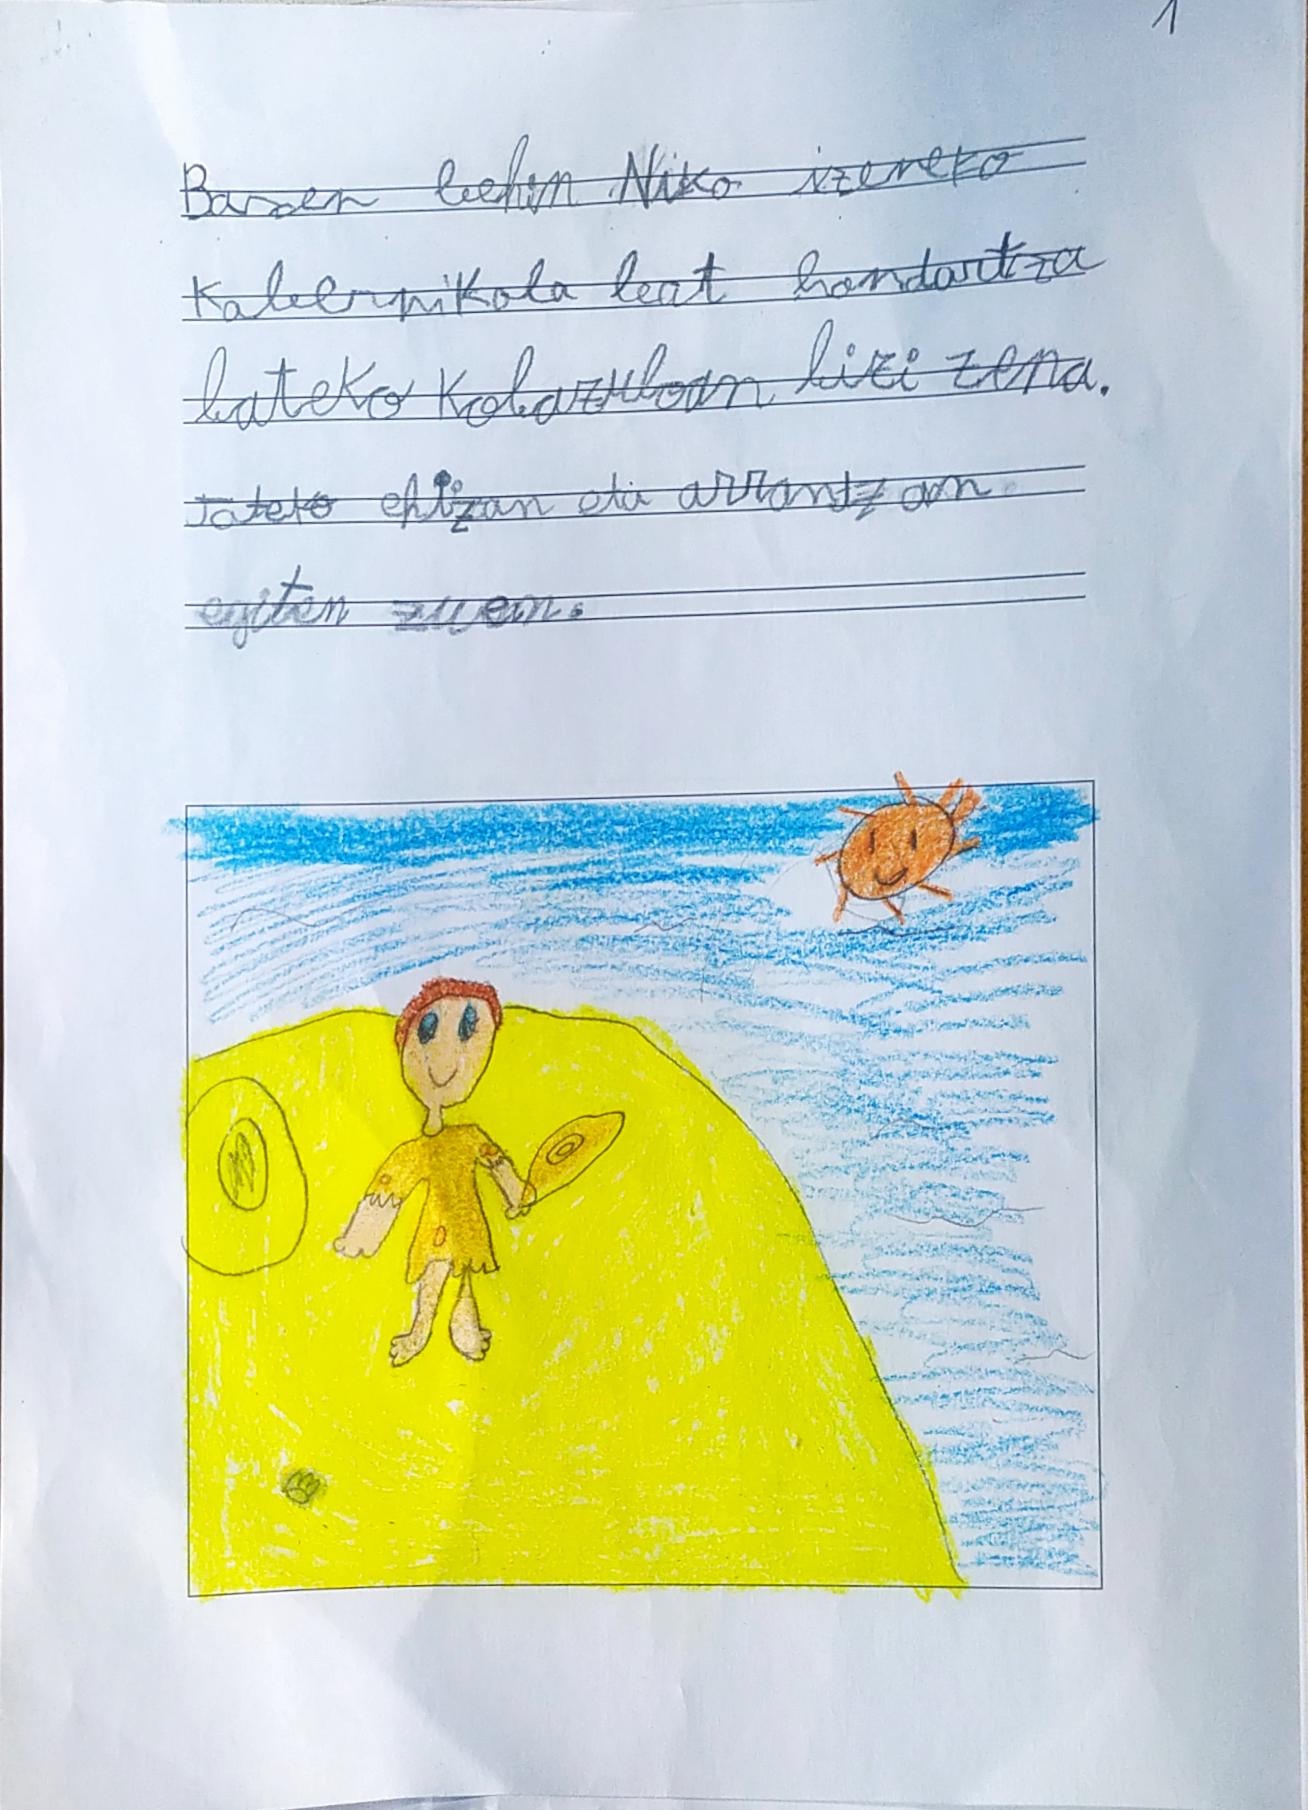 1
Bazen behin Niko izeneko
Kabernikola bat hondartza
bateko Kobazuloan bizi zena.
Jateko ehizan eta arrantzan
egiten zuen.